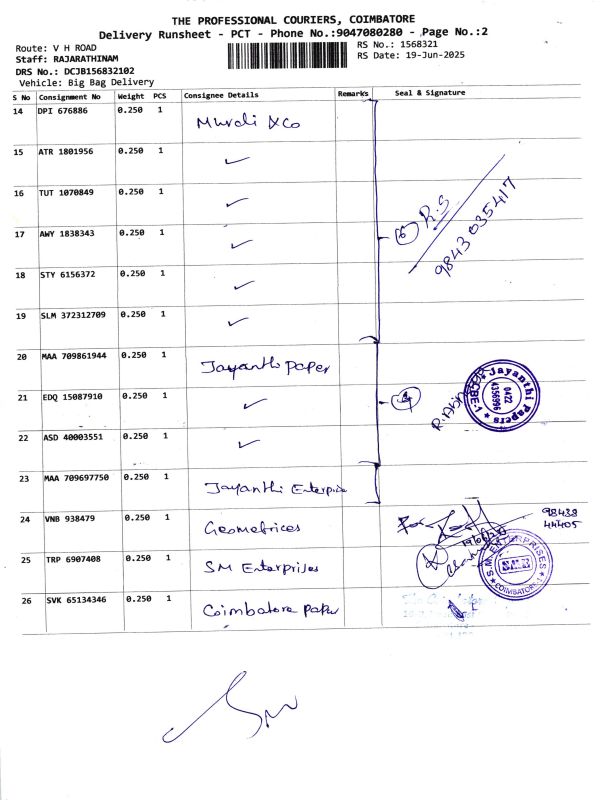 THE PROFESSIONAL COURIERS, COIMBATORE
Delivery Runsheet - PCT - Phone No.:9047080280 - Page No.:2
Route: V H ROAD
RS No.: 1568321
Staff: RAJARATHINAM
RS Date: 19-Jun-2025
DRS No.: DCJB156832102
Vehicle: Big Bag Delivery
S No Consignment No Weight PCS Consignee Details Remarks Seal & Signature
14 DPI 676886 0.250 1 Murali & Co
15 ATR 1801956 0.250 1 ✓
16 TUT 1070849 0.250 1 ✓
17 AWY 1838343 0.250 1 ✓
6 R.S
9843035417
18 STY 6156372 0.250 1 ✓
19 SLM 372312709 0.250 1 ✓
20 MAA 709861944 0.250 1 Jayanthi paper
21 EDQ 15087910 0.250 1 ✓
Jayanthi Papers
0422
4356996
CBE-1
22 ASD 40003551 0.250 1 ✓
23 MAA 709697750 0.250 1 Jayanthi Enterprise
24 VNB 938479 0.250 1 Geometrices
98438
44405
25 TRP 6907408 0.250 1 SM Enterprises
S.M. ENTERPRISES
S.M.E
COIMBATORE-1
26 SVK 65134346 0.250 1 Coimbatore paper